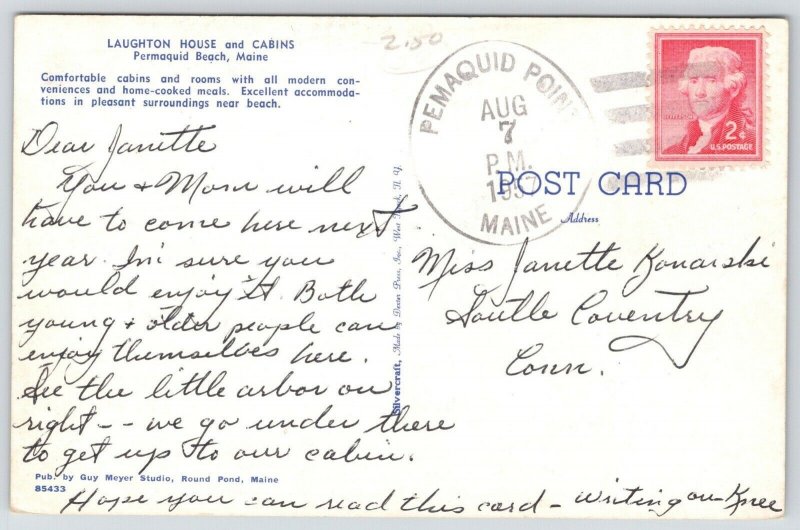 LAUGHTON HOUSE and CABINS
Permaquid Beach, Maine
Comfortable cabins and rooms with all modern con-
veniences and home-cooked meals. Excellent accommoda-
tions in pleasant surroundings near beach.
2.50
PEMAQUID POINT
AUG
7
P.M.
1957
MAINE
JEFFERSON
2¢
U.S. POSTAGE
POST CARD
Address
Dear Janette
You & Mom will
have to come here next
year. I'm sure you
would enjoy it. Both
young & older people can
enjoy themselves here.
See the little arbor on
right -- we go under there
to get up to our cabin.
Hope you can read this card - writing on Knee
Miss Janette Konarski
South Coventry
Conn.
Silvercraft, Made by Dexter Press, Inc., West Nyack, N. Y.
Pub. by Guy Meyer Studio, Round Pond, Maine
85433